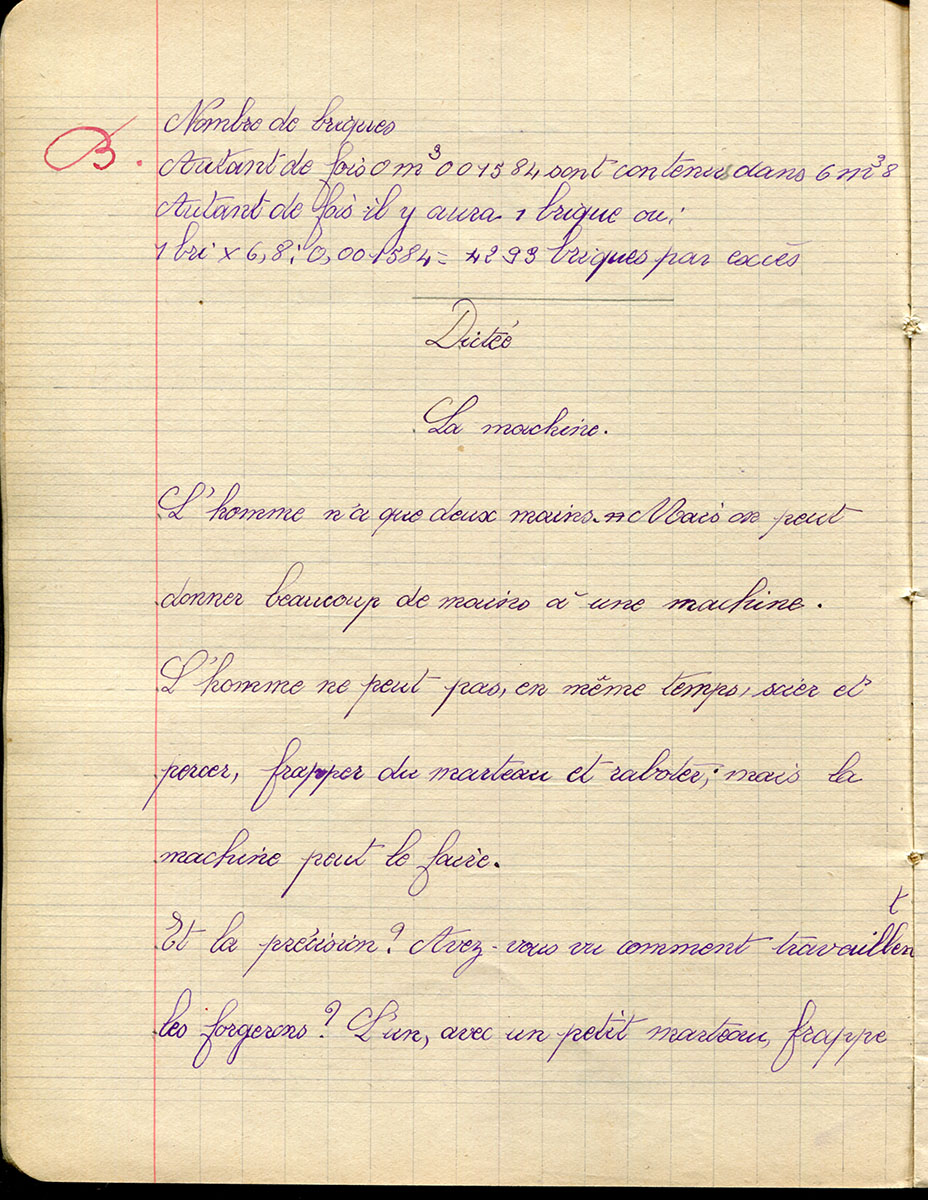 Nombre de briques
B.
Autant de fois 0 m³ 001584 sont contenus dans 6 m³ 8
Autant de fois il y aura 1 brique ou :
1 bri x 6,8 : 0,001584 = 4293 briques par excès
Dictée
La machine.
L'homme n'a que deux mains. Mais on peut
donner beaucoup de mains à une machine.
L'homme ne peut pas, en même temps, scier et
percer, frapper du marteau et raboter ; mais la
machine peut le faire.
Et la précision ? Avez-vous vu comment travaillent
les forgerons ? L'un, avec un petit marteau, frappe